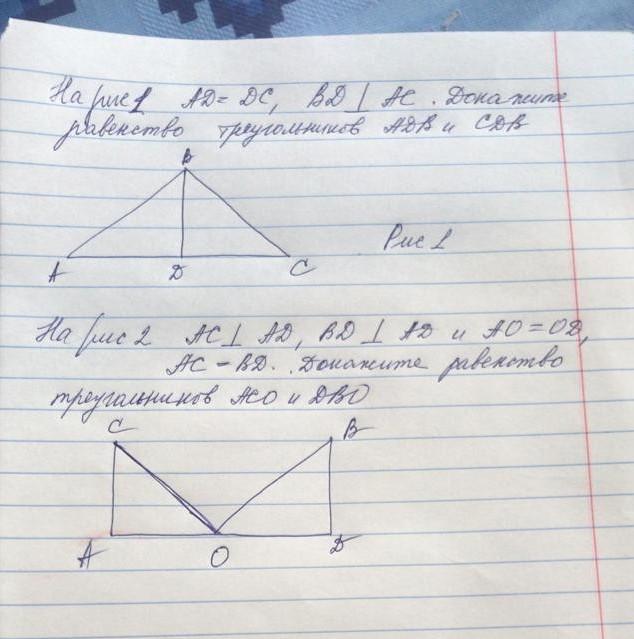 На рис 1 AD = DC, BD ⊥ AC. Докажите
равенство треугольников ADB и CDB
B
A D C
Рис 1
На рис 2 AC ⊥ AD, BD ⊥ AD и AO = OD,
AC = BD. Докажите равенство
треугольников ACO и DBO
C B
A O D